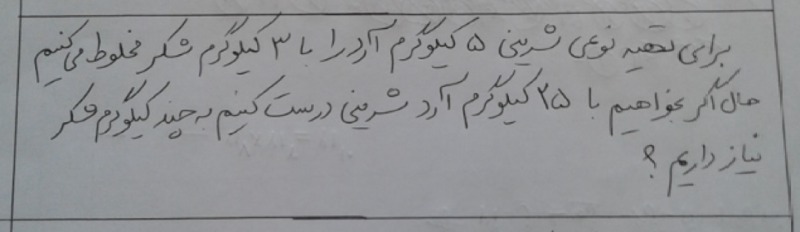 برای تهیه نوعی شیرینی ۵ کیلوگرم آرد را با ۳ کیلوگرم شکر مخلوط می کنیم
حال اگر بخواهیم با ۲۵ کیلوگرم آرد شیرینی درست کنیم به چند کیلوگرم شکر
نیاز داریم ؟